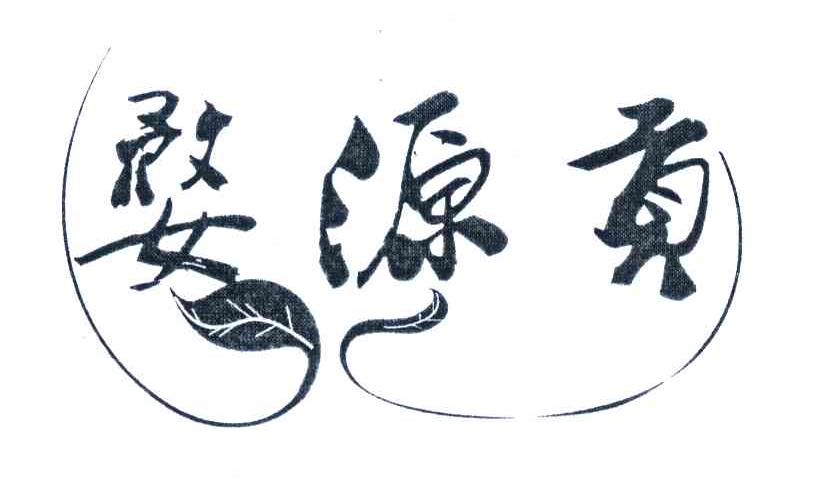 婺源贡